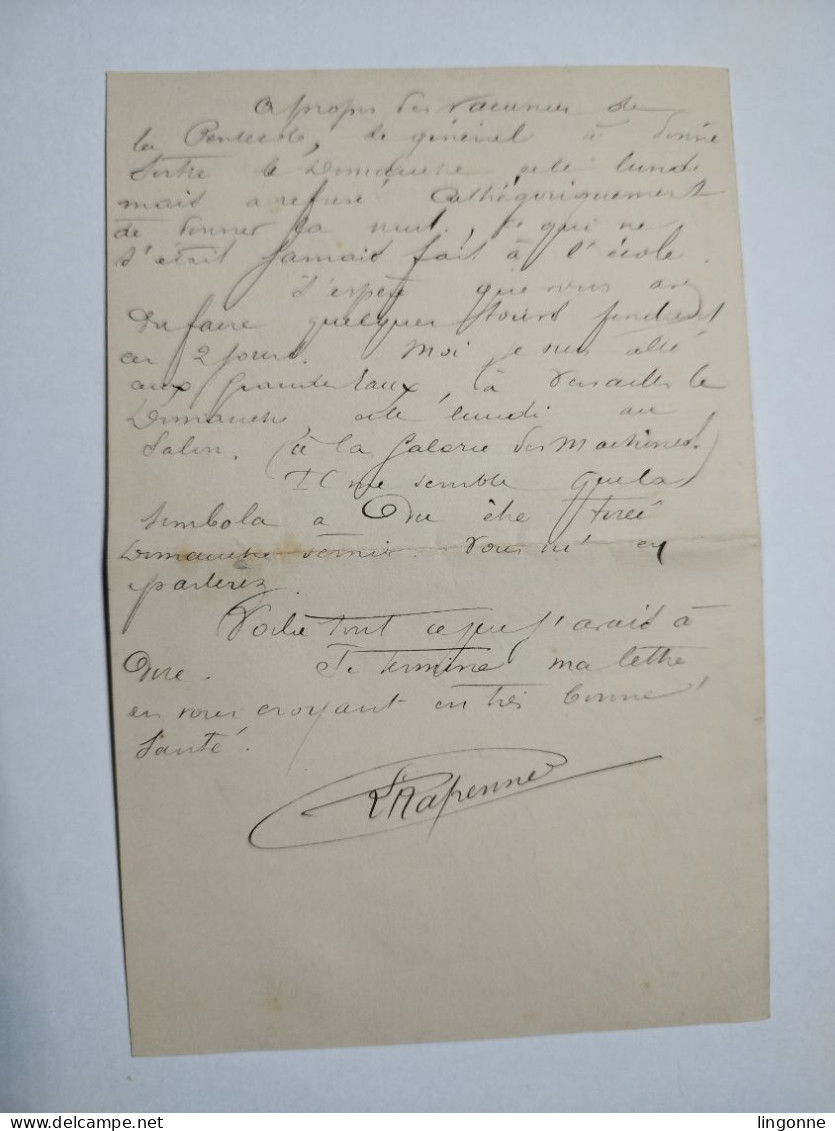 A propos des vacances de
la Pentecote, le général à donné
sortie le Dimanche et le lundi
mais a refusé cathégoriquement
de donner la nuit, ce qui ne
s'était jamais fait à l'école.
J'espère que vous avez
du faire quelques tours pendant
ces 2 jours. Moi je suis allé
aux grandes Eaux, à Versailles le
Dimanche et le lundi au
Salon. (à la Galerie des Machines)
Il me semble que la
tombola a du être tirée
Dimanche dernier. Vous m'en
parlerez.
Voila tout ce que j'avais à
dire. Je termine ma lettre
en vous croyant en très bonne
Santé.
Rapenne
lingonne